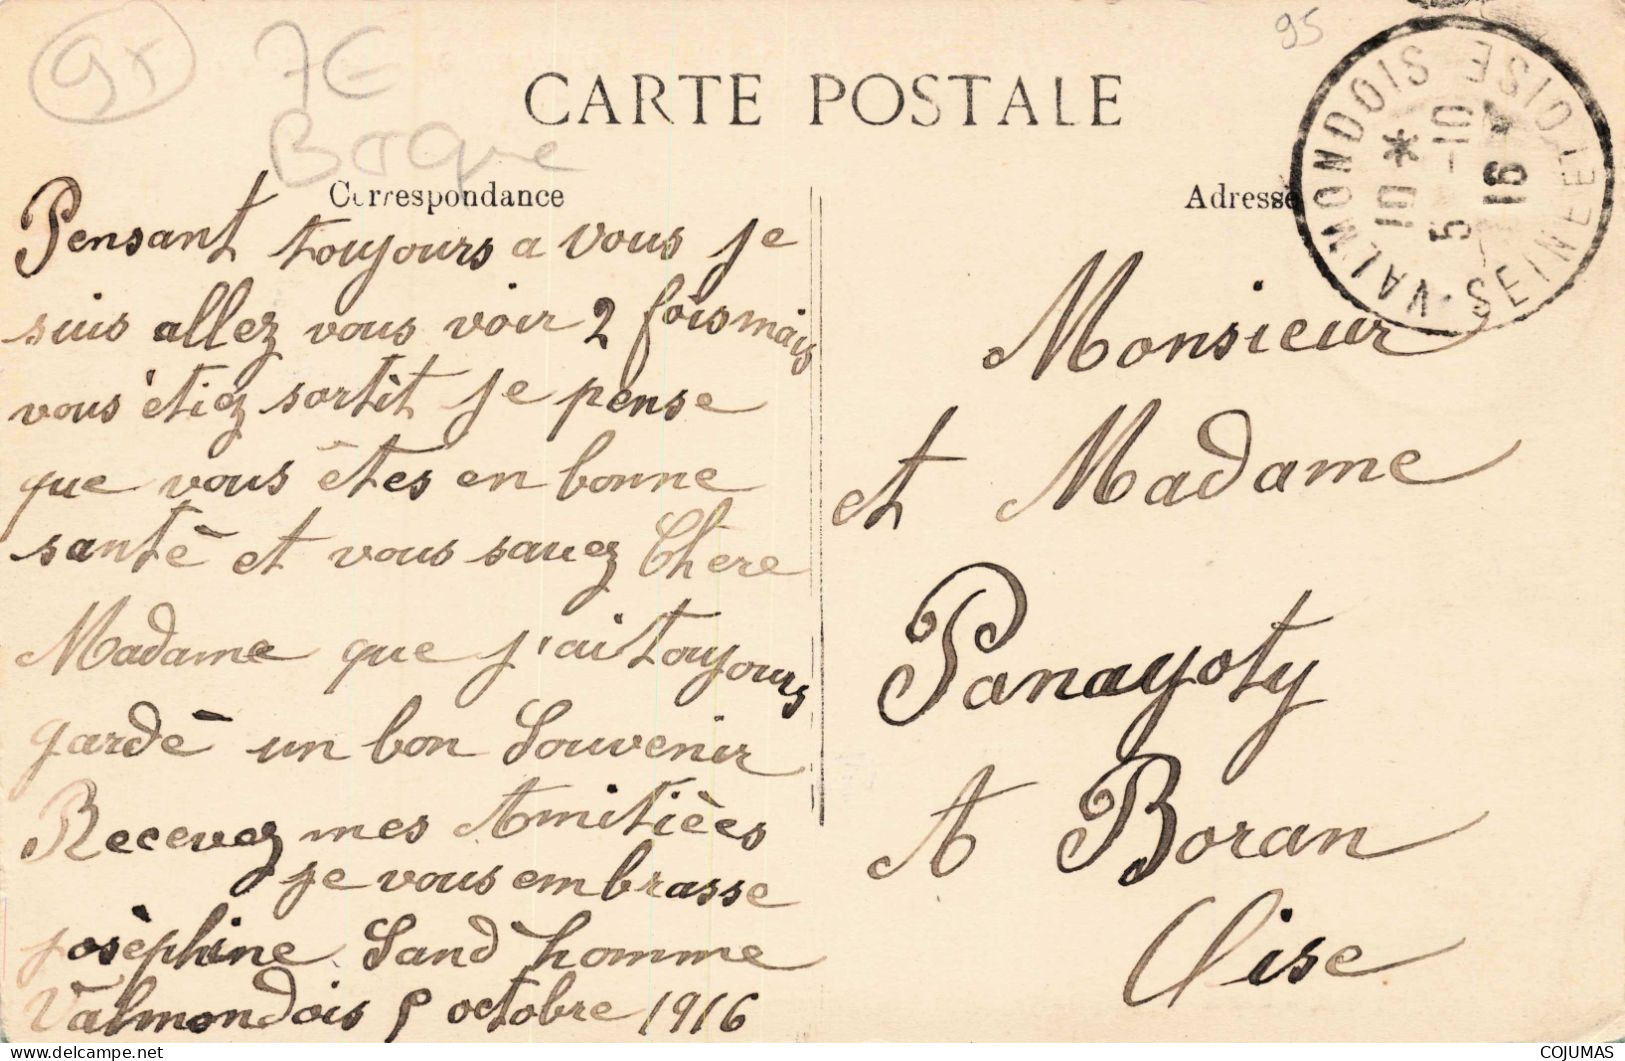 95
7€
Barque
95
CARTE POSTALE
Correspondance
Adresse
VALMONDOIS
SEINE ET OISE
10 *
5 -10
16
Pensant toujours a vous je
suis allez vous voir 2 fois mais
vous étiez sortit je pense
que vous êtes en bonne
santé et vous savez Chère
Madame que j'ai toujours
gardé un bon Souvenir
Recevez mes Amitièes
je vous embrasse
josèphine Sand'homme
Valmondois 5 octobre 1916
Monsieur
et Madame
Panayoty
A Boran
Oise
delcampe.net
COJUMAS